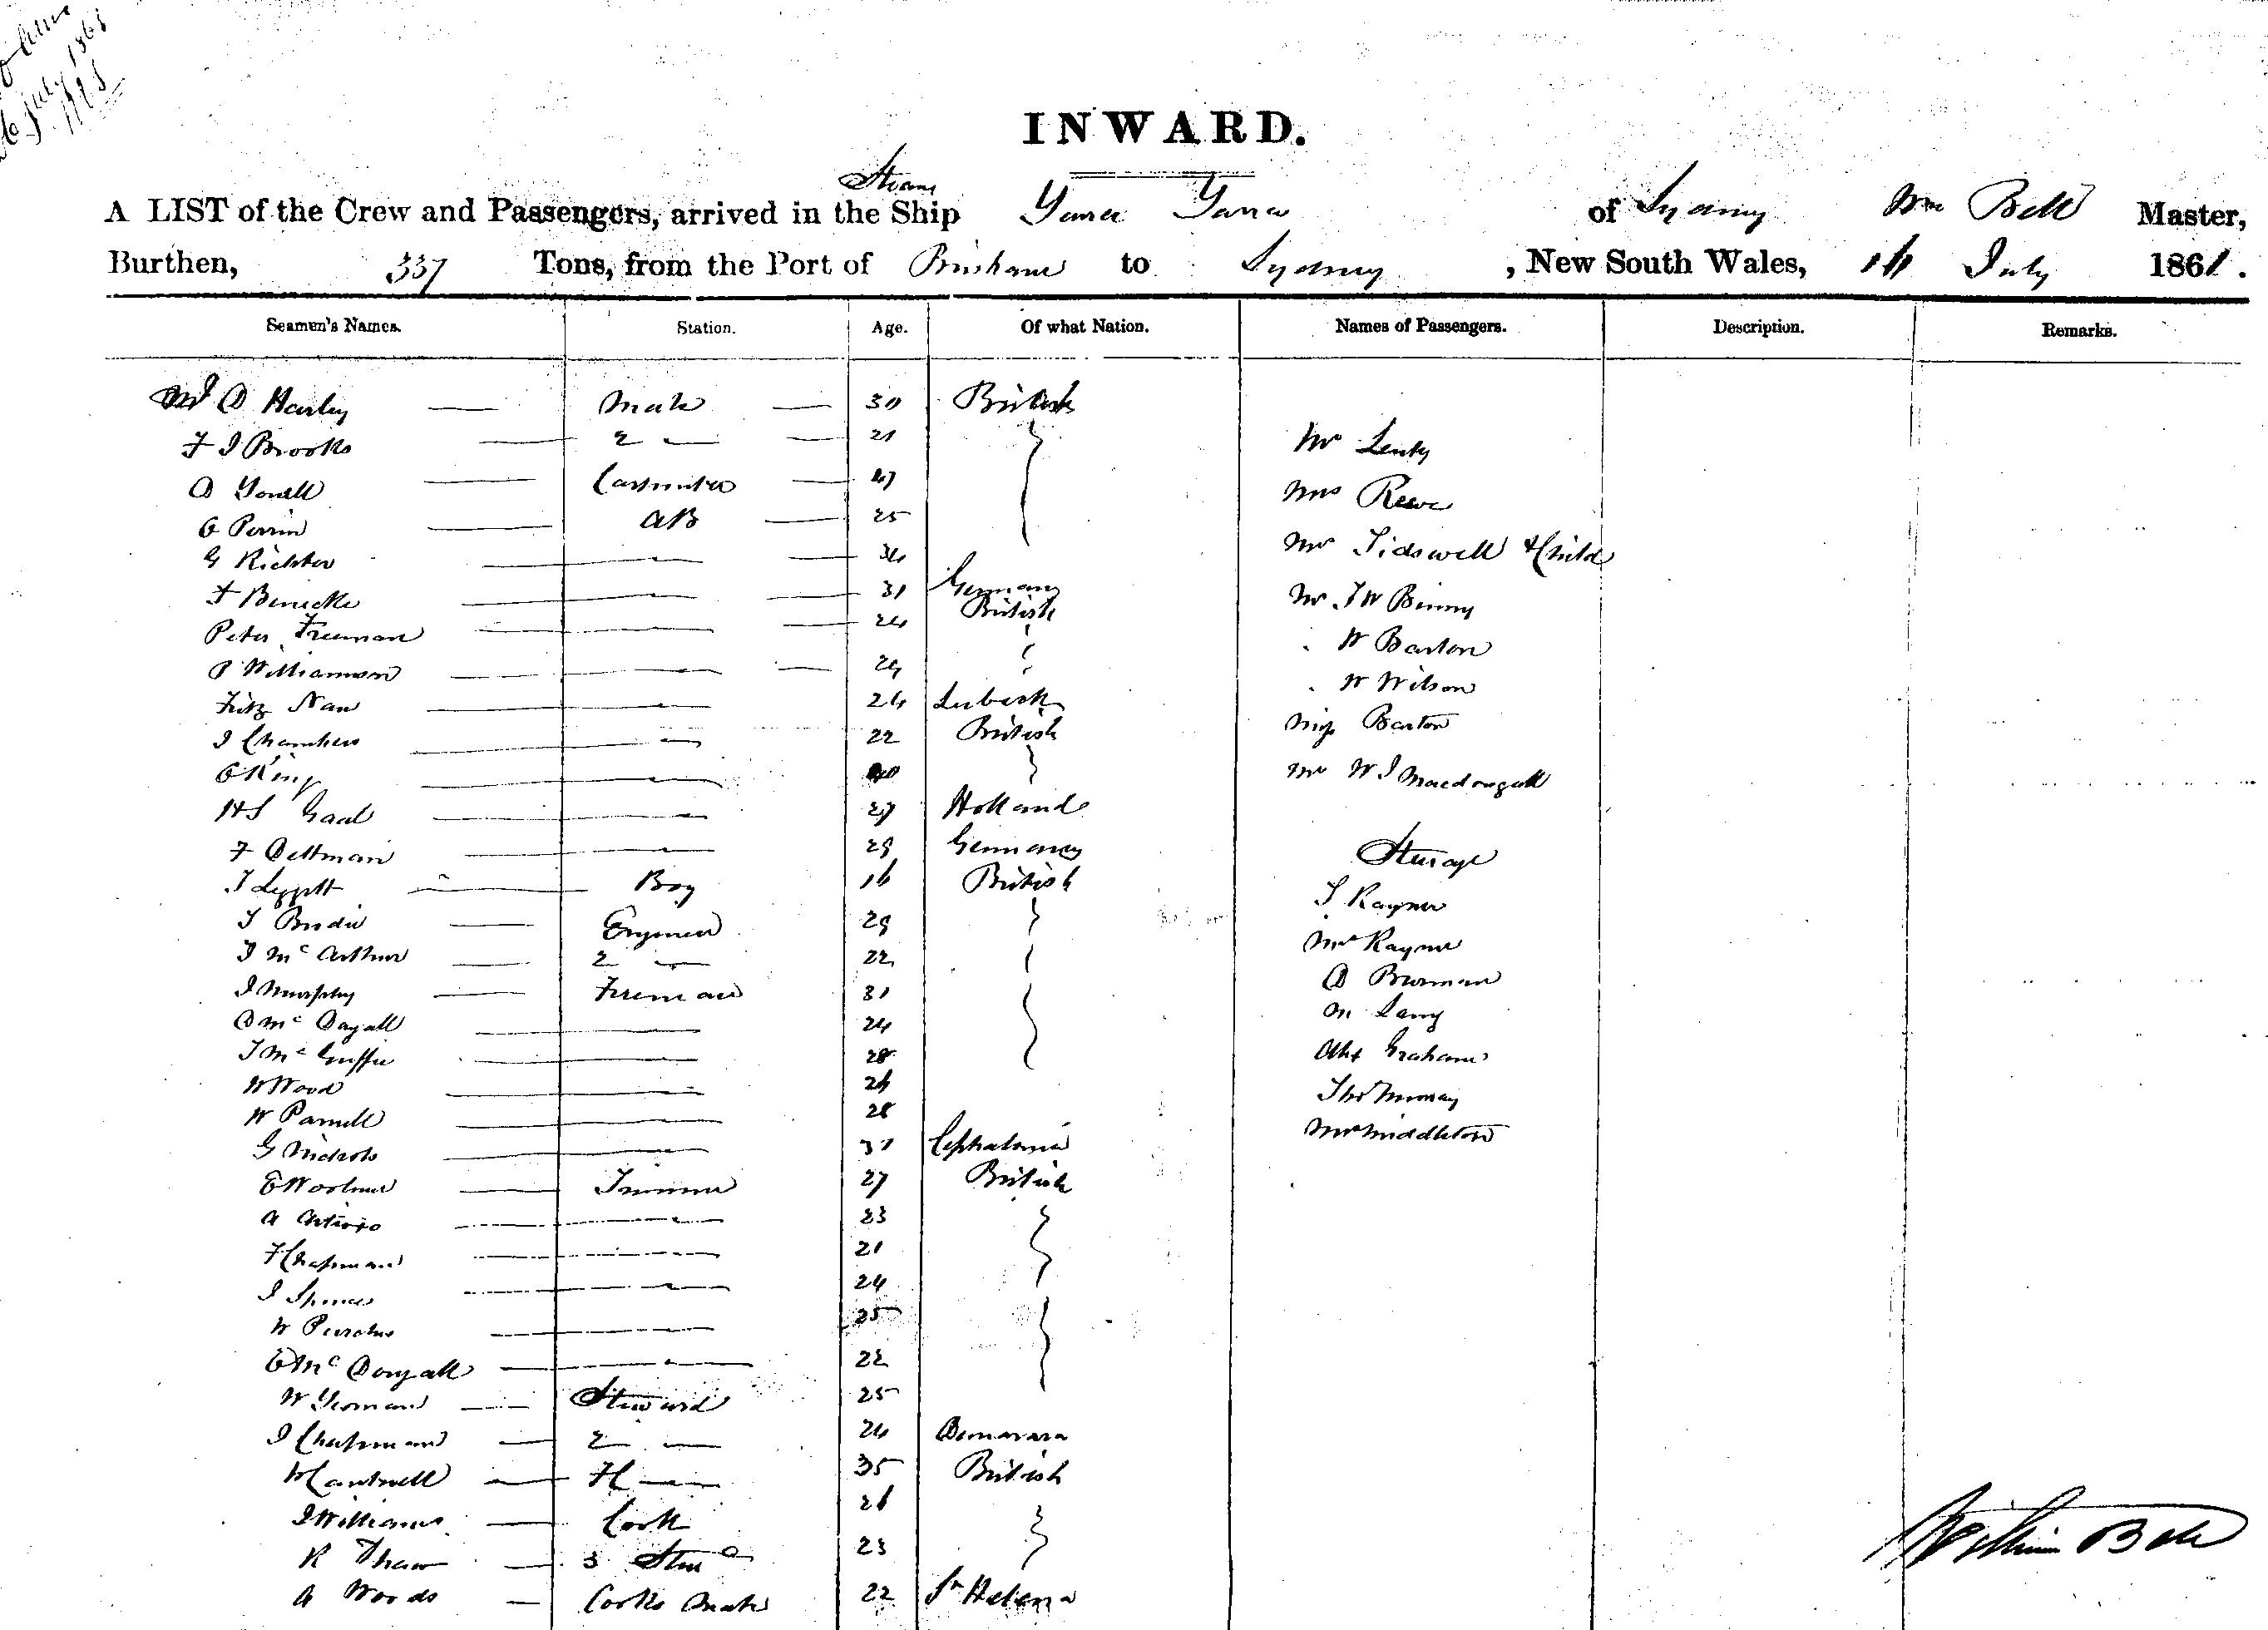 July 1868
INWARD.
Steam
A LIST of the Crew and Passengers, arrived in the Ship Yarra Yarra of Sydney Wm Bell Master,
Burthen, 337 Tons, from the Port of Brisbane to Sydney , New South Wales, 16 July 1868.
Seamen's Names. Station. Age. Of what Nation. Names of Passengers. Description. Remarks.
D Harley Mate 30 British
F J Brooks 2 21
D Yonell Carpenter 47
G Perrin AB 25
G Richter 34
F Benecke 31 Germany
Peter Freeman 24 British
P Williamson 29
Fritz Nau 24 Lubeck
J Chambers 22 British
G King 40
H S Gaal 27 Holland
F Dettman 29 Germany
J Lygett Boy 16 British
J Brodie Engineer 29
J McArthur 2 22
J Murphy Fireman 31
D McDugall 24
J McGuffie 28
W Wood 26
W Parnell 28
G Nichols 31 Cephalonia
E Woolmer Trimmer 27 British
A 23
F Chapman 21
J Spence 24
W Purches 25
E McDougall 22
W Yeoman Steward 25
J Chapman 2 24 Demarara
W Cantwell F C 35 British
J Williams Cook 26
R Shaw 3 Stew 23
A Woods Cooks Mate 22 St Helena
Mr Lenty
Mrs Reeve
Mrs Tidswell & Child
Mr J W Binny
" W Barton
" W Wilson
Miss Barton
Mr W J Macdougall
Steerage
J Rayner
Mrs Rayner
D Burman
M Lang
Alex Graham
Thos Murray
Mrs Middleton
William Bell